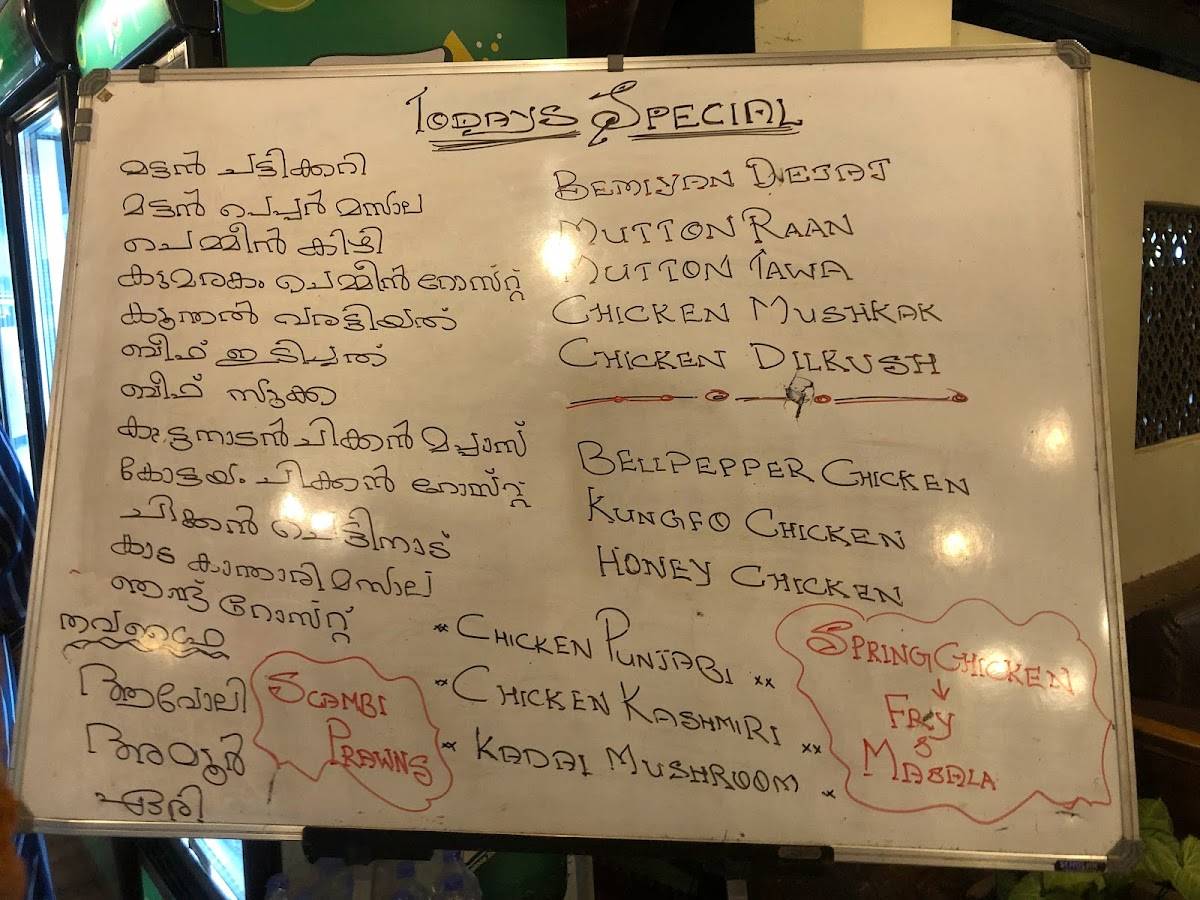 TODAYS SPECIAL
മട്ടൻ ചട്ടിക്കറി
മട്ടൻ പെപ്പർ മസാല
ചെമ്മീൻ കിഴി
കുമരകം ചെമ്മീൻ റോസ്റ്റ്
കൂന്തൽ വരട്ടിയത്
ബീഫ് ഇടിച്ചത്
ബീഫ് സുക്ക
കുട്ടനാടൻ ചിക്കൻ മപ്പാസ്
കോട്ടയം ചിക്കൻ റോസ്റ്റ്
ചിക്കൻ ചെട്ടിനാട്
കാട കാന്താരി മസാല
ഞണ്ട് റോസ്റ്റ്
തവഫ്രൈ
ആവോലി
അയ്ക്കൂർ
ഏരി
SCAMBI
PRAWNS
BEMIYAN DEJAJ
MUTTON RAAN
MUTTON TAWA
CHICKEN MUSHKAK
CHICKEN DILKUSH
BELLPEPPER CHICKEN
KUNGFO CHICKEN
HONEY CHICKEN
** CHICKEN PUNJABI **
* CHICKEN KASHMIRI **
* KADAI MUSHROOM *
SPRING CHICKEN
↓
FRY
&
MASALA